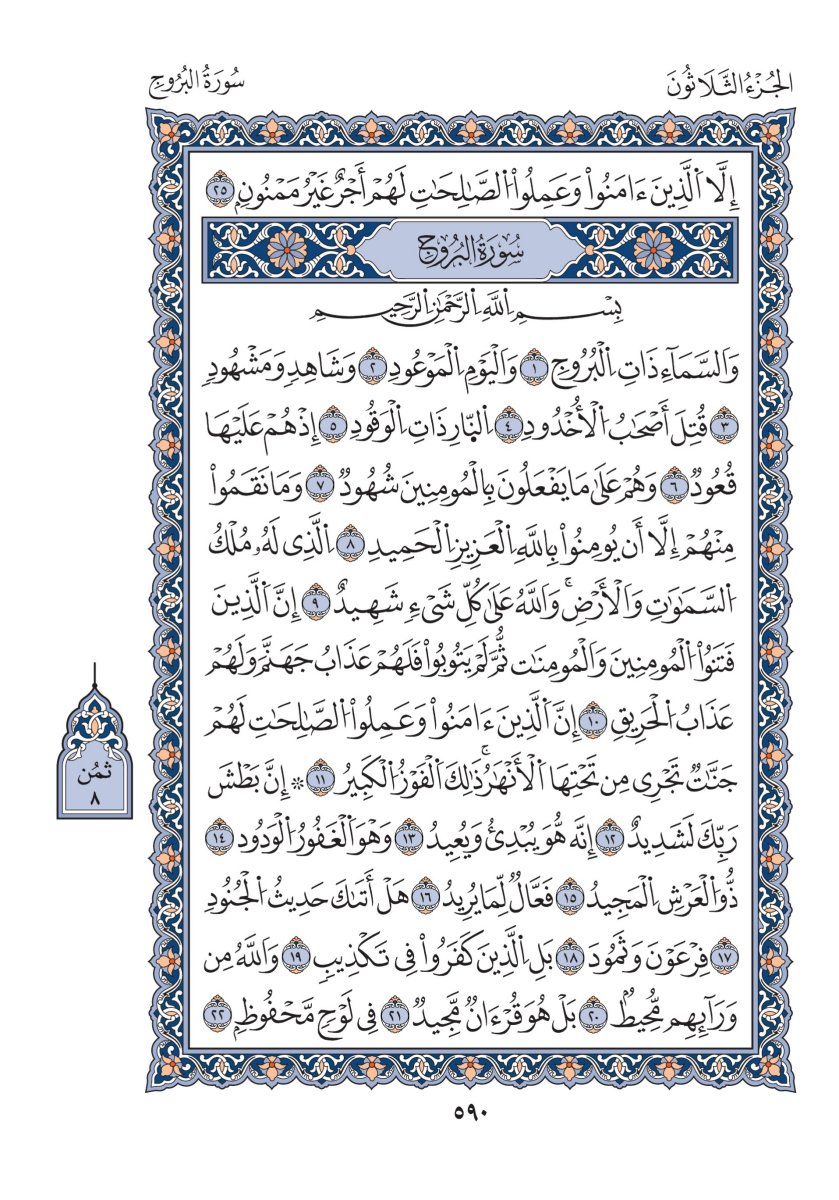 الجُزْءُ الثَّلَاثُونَ
سُورَةُ البُرُوجِ
إِلَّا اَلَّذِينَ ءَامَنُواْ وَعَمِلُواْ اُلصَّٰلِحَٰتِ لَهُمۡ أَجۡرٌ غَيۡرُ مَمۡنُونِۭ ٢٥
سُورَةُ البُرُوجِ
بِسۡمِ اِللَّهِ اِلرَّحۡمَٰنِ اِلرَّحِيمِ
وَالسَّمَآءِ ذَاتِ اِلۡبُرُوجِ ١ وَالۡيَوۡمِ اِلۡمَوۡعُودِ ٢ وَشَاهِدٖ وَمَشۡهُودٖ
٣ قُتِلَ أَصۡحَٰبُ اُلۡأُخۡدُودِ ٤ اِلنّ۪ارِ ذَاتِ اِلۡوَقُودِ ٥ إِذۡ هُمۡ عَلَيۡهَا
قُعُودٞ ٦ وَهُمۡ عَلَىٰ مَا يَفۡعَلُونَ بِالۡمُومِنِينَ شُهُودٞ ٧ وَمَا نَقَمُواْ
مِنۡهُمۡ إِلَّا أَن يُومِنُواْ بِاللَّهِ اِلۡعَزِيزِ اِلۡحَمِيدِ ٨ اِلَّذِى لَهُۥ مُلۡكُ
اُلسَّمَٰوَٰتِ وَالۡأَرۡضِۚ وَاللَّهُ عَلَىٰ كُلِّ شَىۡءٖ شَهِيدٌ ٩ إِنَّ اَلَّذِينَ
فَتَنُواْ اُلۡمُومِنِينَ وَالۡمُومِنَٰت ثُّمَّ لَمۡ يَتُوبُواْ فَلَهُمۡ عَذَابُ جَهَنَّمَ وَلَهُمۡ
عَذَابُ اُلۡحَرِيقِ ١٠ إِنَّ اَلَّذِينَ ءَامَنُواْ وَعَمِلُواْ اُلصَّٰلِحَٰتِ لَهُمۡ
جَنَّٰتٞ تَجۡرِى مِن تَحۡتِهَا اَلۡأَنۡهَٰرُۚ ذَٰلِكَ اَلۡفَوۡزُ اُلۡكَبِيرُ ١١ ۞ إِنَّ بَطۡشَ
رَبِّكَ لَشَدِيدٌ ١٢ إِنَّه هُّوَ يُبۡدِئُ وَيُعِيدُ ١٣ وَهۡوَ اَلۡغَفُورُ اُلۡوَدُود ١٤
ذُّو اُلۡعَرۡشِ اِلۡمَجِيدُ ١٥ فَعَّالٞ لِّمَا يُرِيدُ ١٦ هَلۡ أَتَىٰكَ حَدِيثُ اُلۡجُنُودِ
١٧ فِرۡعَوۡنَ وَثَمُودَ ١٨ بَلِ اِلَّذِينَ كَفَرُواْ فِى تَكۡذِيبٖ ١٩ وَاللَّهُ مِن
وَرَآئِهِم مُّحِيطُۢ ٢٠ بَلۡ هُوَ قُرۡءَانٞ مَّجِيدٞ ٢١ فِى لَوۡحٖ مَّحۡفُوظِۭ ٢٢
ثُمُن
٨
٥٩٠